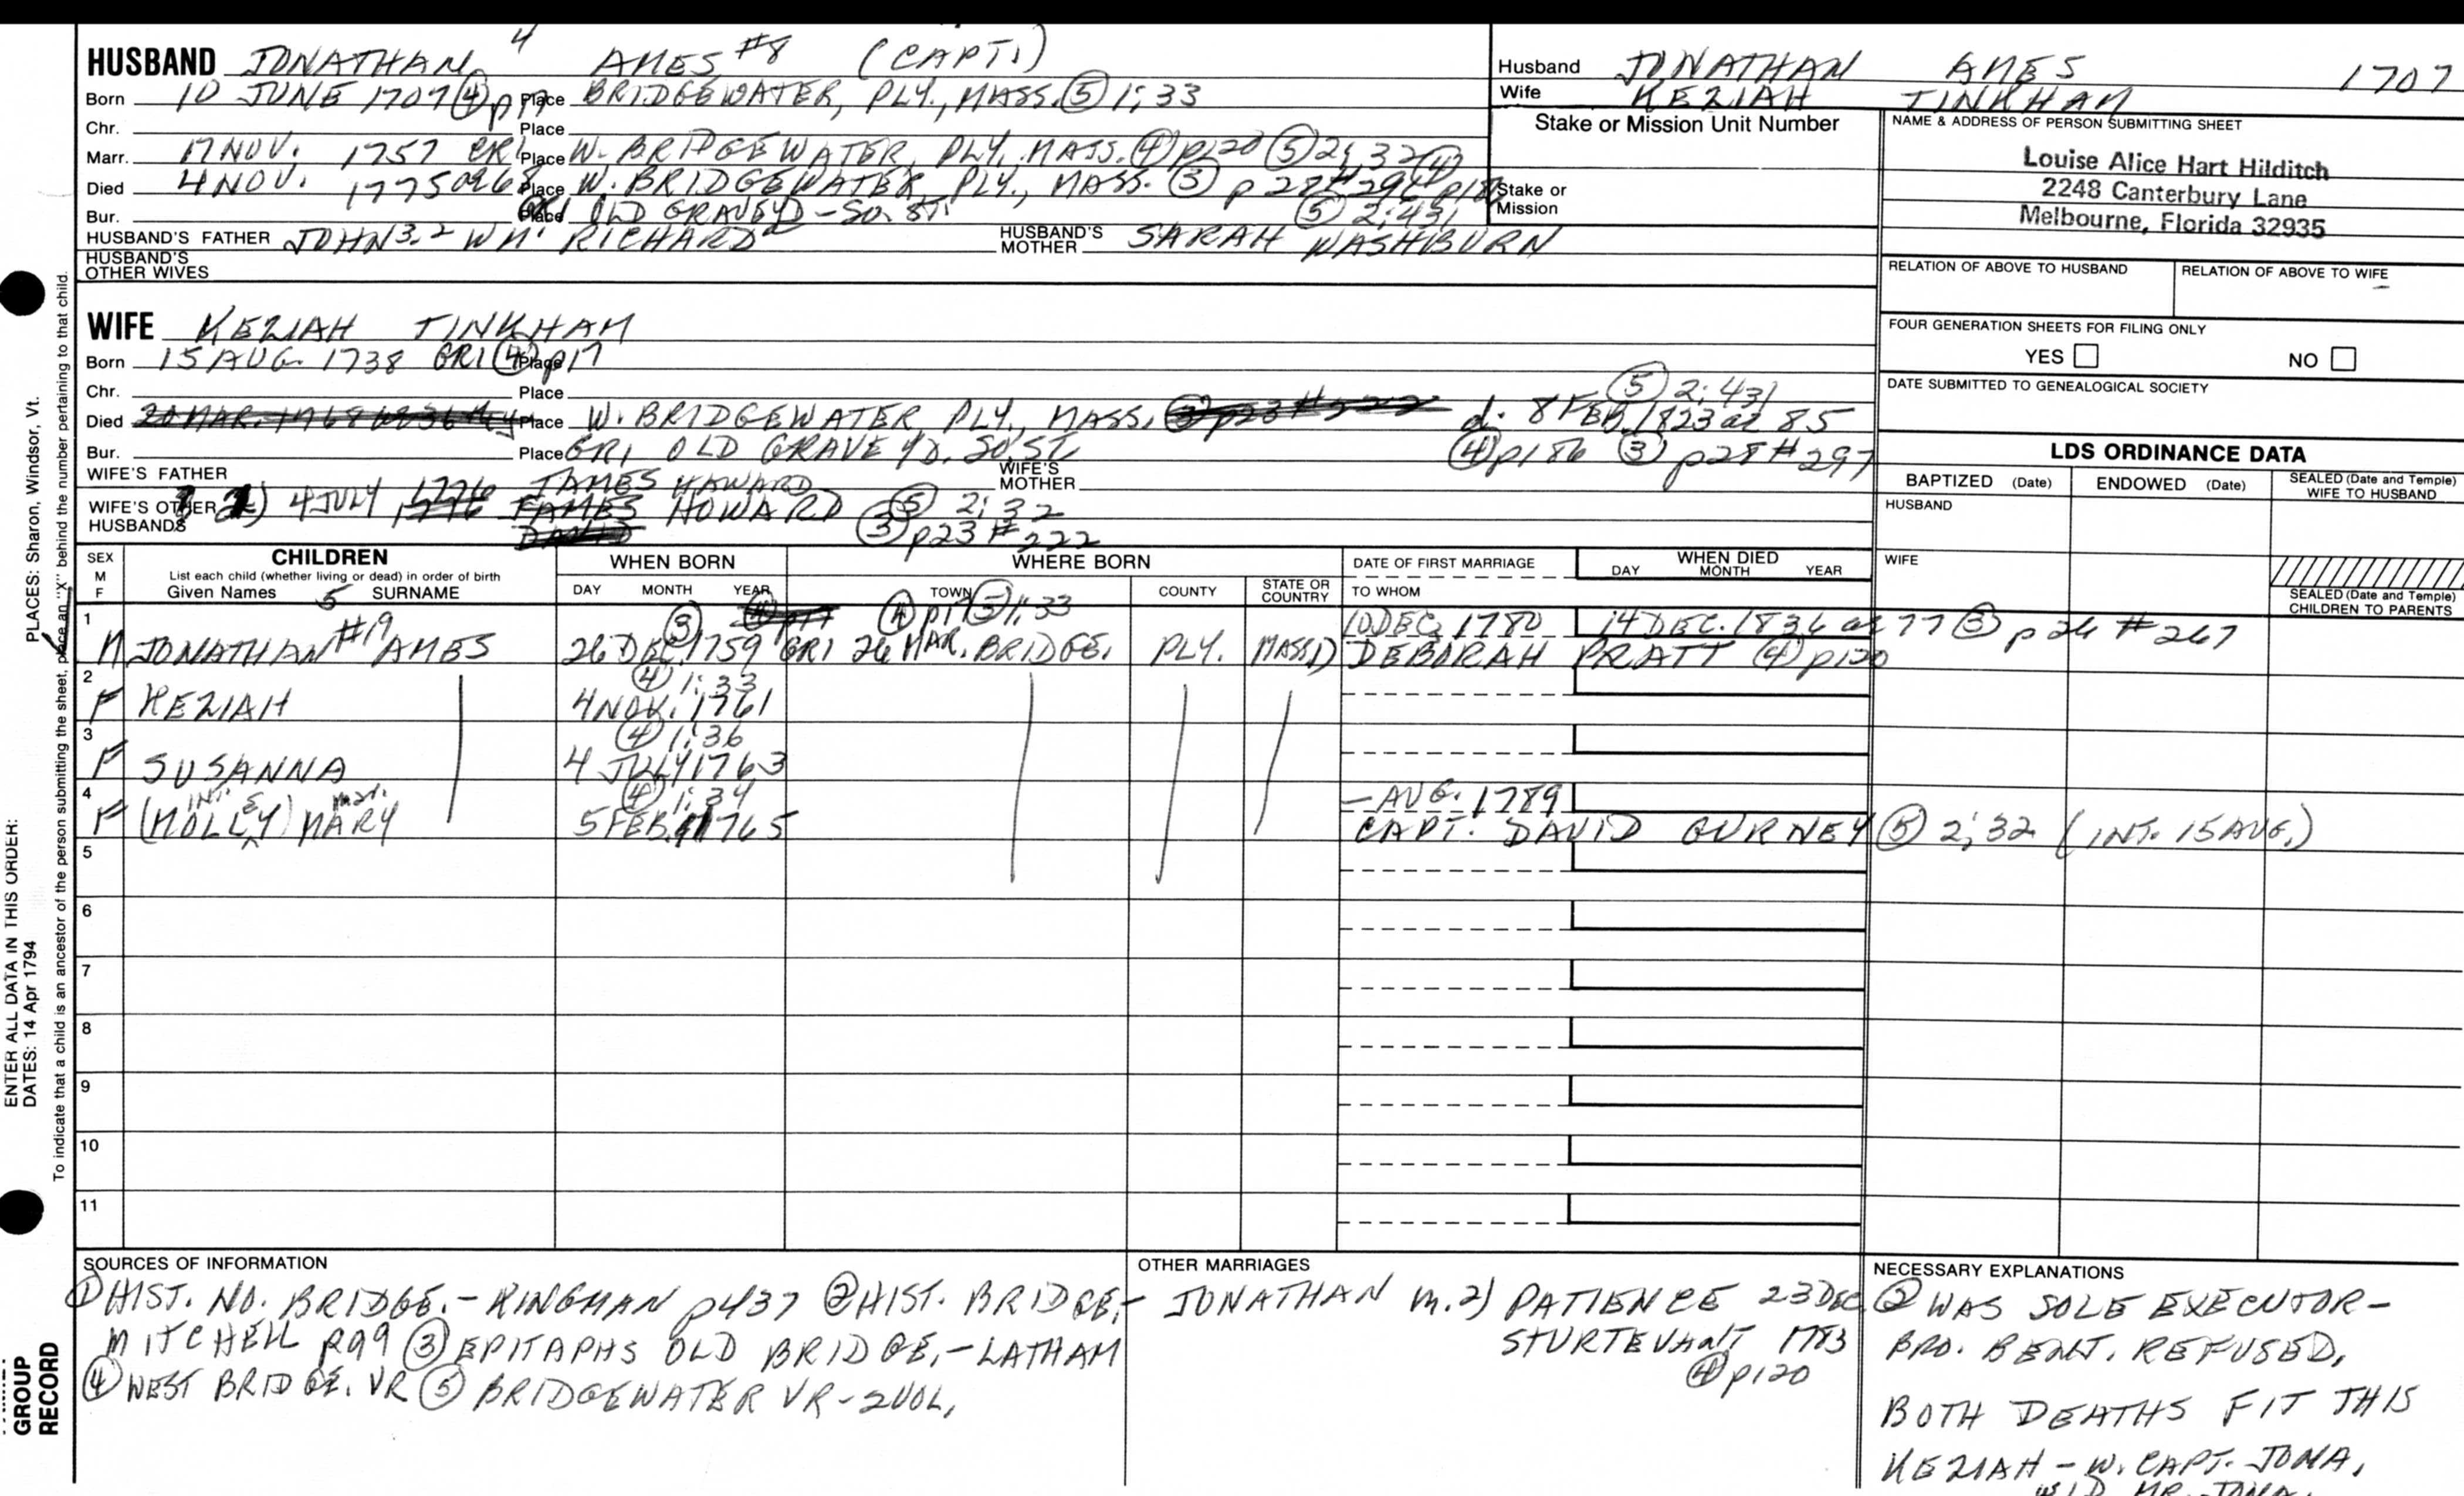 HUSBAND JONATHAN 4 AMES #8 (CAPT.)
Born 10 JUNE 1707 ④ p17 Place BRIDGEWATER, PLY., MASS. ⑤ 1:33
Chr. Place
Marr. 17 NOV. 1757 Place W. BRIDGEWATER, PLY. MASS. ④ p120 ⑤ 2:32
Died 4 NOV. 1775 Place W. BRIDGEWATER, PLY., MASS. ③ p 28 #296
Bur. Place OLD GRAVEYD - SO. ST. ⑤ 2:431
HUSBAND'S FATHER JOHN 3, 2 WM. RICHARD HUSBAND'S MOTHER SARAH WASHBURN
HUSBAND'S OTHER WIVES
Husband JONATHAN AMES 1707
Wife KEZIAH TINKHAM
Stake or Mission Unit Number
Stake or Mission
NAME & ADDRESS OF PERSON SUBMITTING SHEET
Louise Alice Hart Hilditch
2248 Canterbury Lane
Melbourne, Florida 32935
RELATION OF ABOVE TO HUSBAND RELATION OF ABOVE TO WIFE
FOUR GENERATION SHEETS FOR FILING ONLY
YES NO
DATE SUBMITTED TO GENEALOGICAL SOCIETY
WIFE KEZIAH TINKHAM
Born 15 AUG. 1738 GR1 ④ p17 Place
Chr. Place ⑤ 2:431
Died Place W. BRIDGEWATER, PLY., MASS. d. 8 FEB. 1823 ae 85
Bur. Place GR1 OLD GRAVE YD. SO. ST. ④ p186 ③ p28 #297
WIFE'S FATHER WIFE'S MOTHER
JAMES HAWARD
WIFE'S OTHER HUSBANDS 2) 4 JULY 1776 JAMES HOWARD ⑤ 2:32
③ p23 #222
LDS ORDINANCE DATA
BAPTIZED (Date) ENDOWED (Date) SEALED (Date and Temple) WIFE TO HUSBAND
HUSBAND
WIFE
SEALED (Date and Temple) CHILDREN TO PARENTS
SEX M F CHILDREN WHEN BORN WHERE BORN DATE OF FIRST MARRIAGE WHEN DIED
List each child (whether living or dead) in order of birth DAY MONTH YEAR
Given Names 5 SURNAME DAY MONTH YEAR TOWN COUNTY STATE OR COUNTRY TO WHOM
③ ④ p17 ⑤ 1:33
1 M JONATHAN #19 AMES 26 DEC. 1759 GR1 26 MAR. BRIDGE. PLY. MASS. 10 DEC. 1780 14 DEC. 1836 ae 77 ③ p 26 #267
1) DEBORAH PRATT ④ p120
④ 1:33
2 F KEZIAH 4 NOV. 1761
④ 1:36
3 F SUSANNA 4 JULY 1763
INT. & mar. ④ 1:34 - AUG. 1789
4 F (MOLLY) MARY 5 FEB. 1765 CAPT. DAVID GURNEY ⑤ 2:32 (INT. 15 AUG.)
5
6
7
8
9
10
11
SOURCES OF INFORMATION
① HIST. NO. BRIDGE. - KINGMAN p437 ② HIST. BRIDGE. -
MITCHELL p99 ③ EPITAPHS OLD BRIDGE. - LATHAM
④ WEST BRIDGE. VR ⑤ BRIDGEWATER VR - 2 VOL.
OTHER MARRIAGES
JONATHAN m. 2) PATIENCE 23 DEC.
STURTEVANT 1783
④ p120
NECESSARY EXPLANATIONS
② WAS SOLE EXECUTOR -
BRO. BENJ. REFUSED.
BOTH DEATHS FIT THIS
KEZIAH - W. CAPT. JONA.
WID. MR. JONA.
PLACES: Sharon, Windsor, Vt.
ENTER ALL DATA IN THIS ORDER:
DATES: 14 Apr 1794
To indicate that a child is an ancestor of the person submitting the sheet, place an "X" behind the number pertaining to that child.
GROUP
RECORD